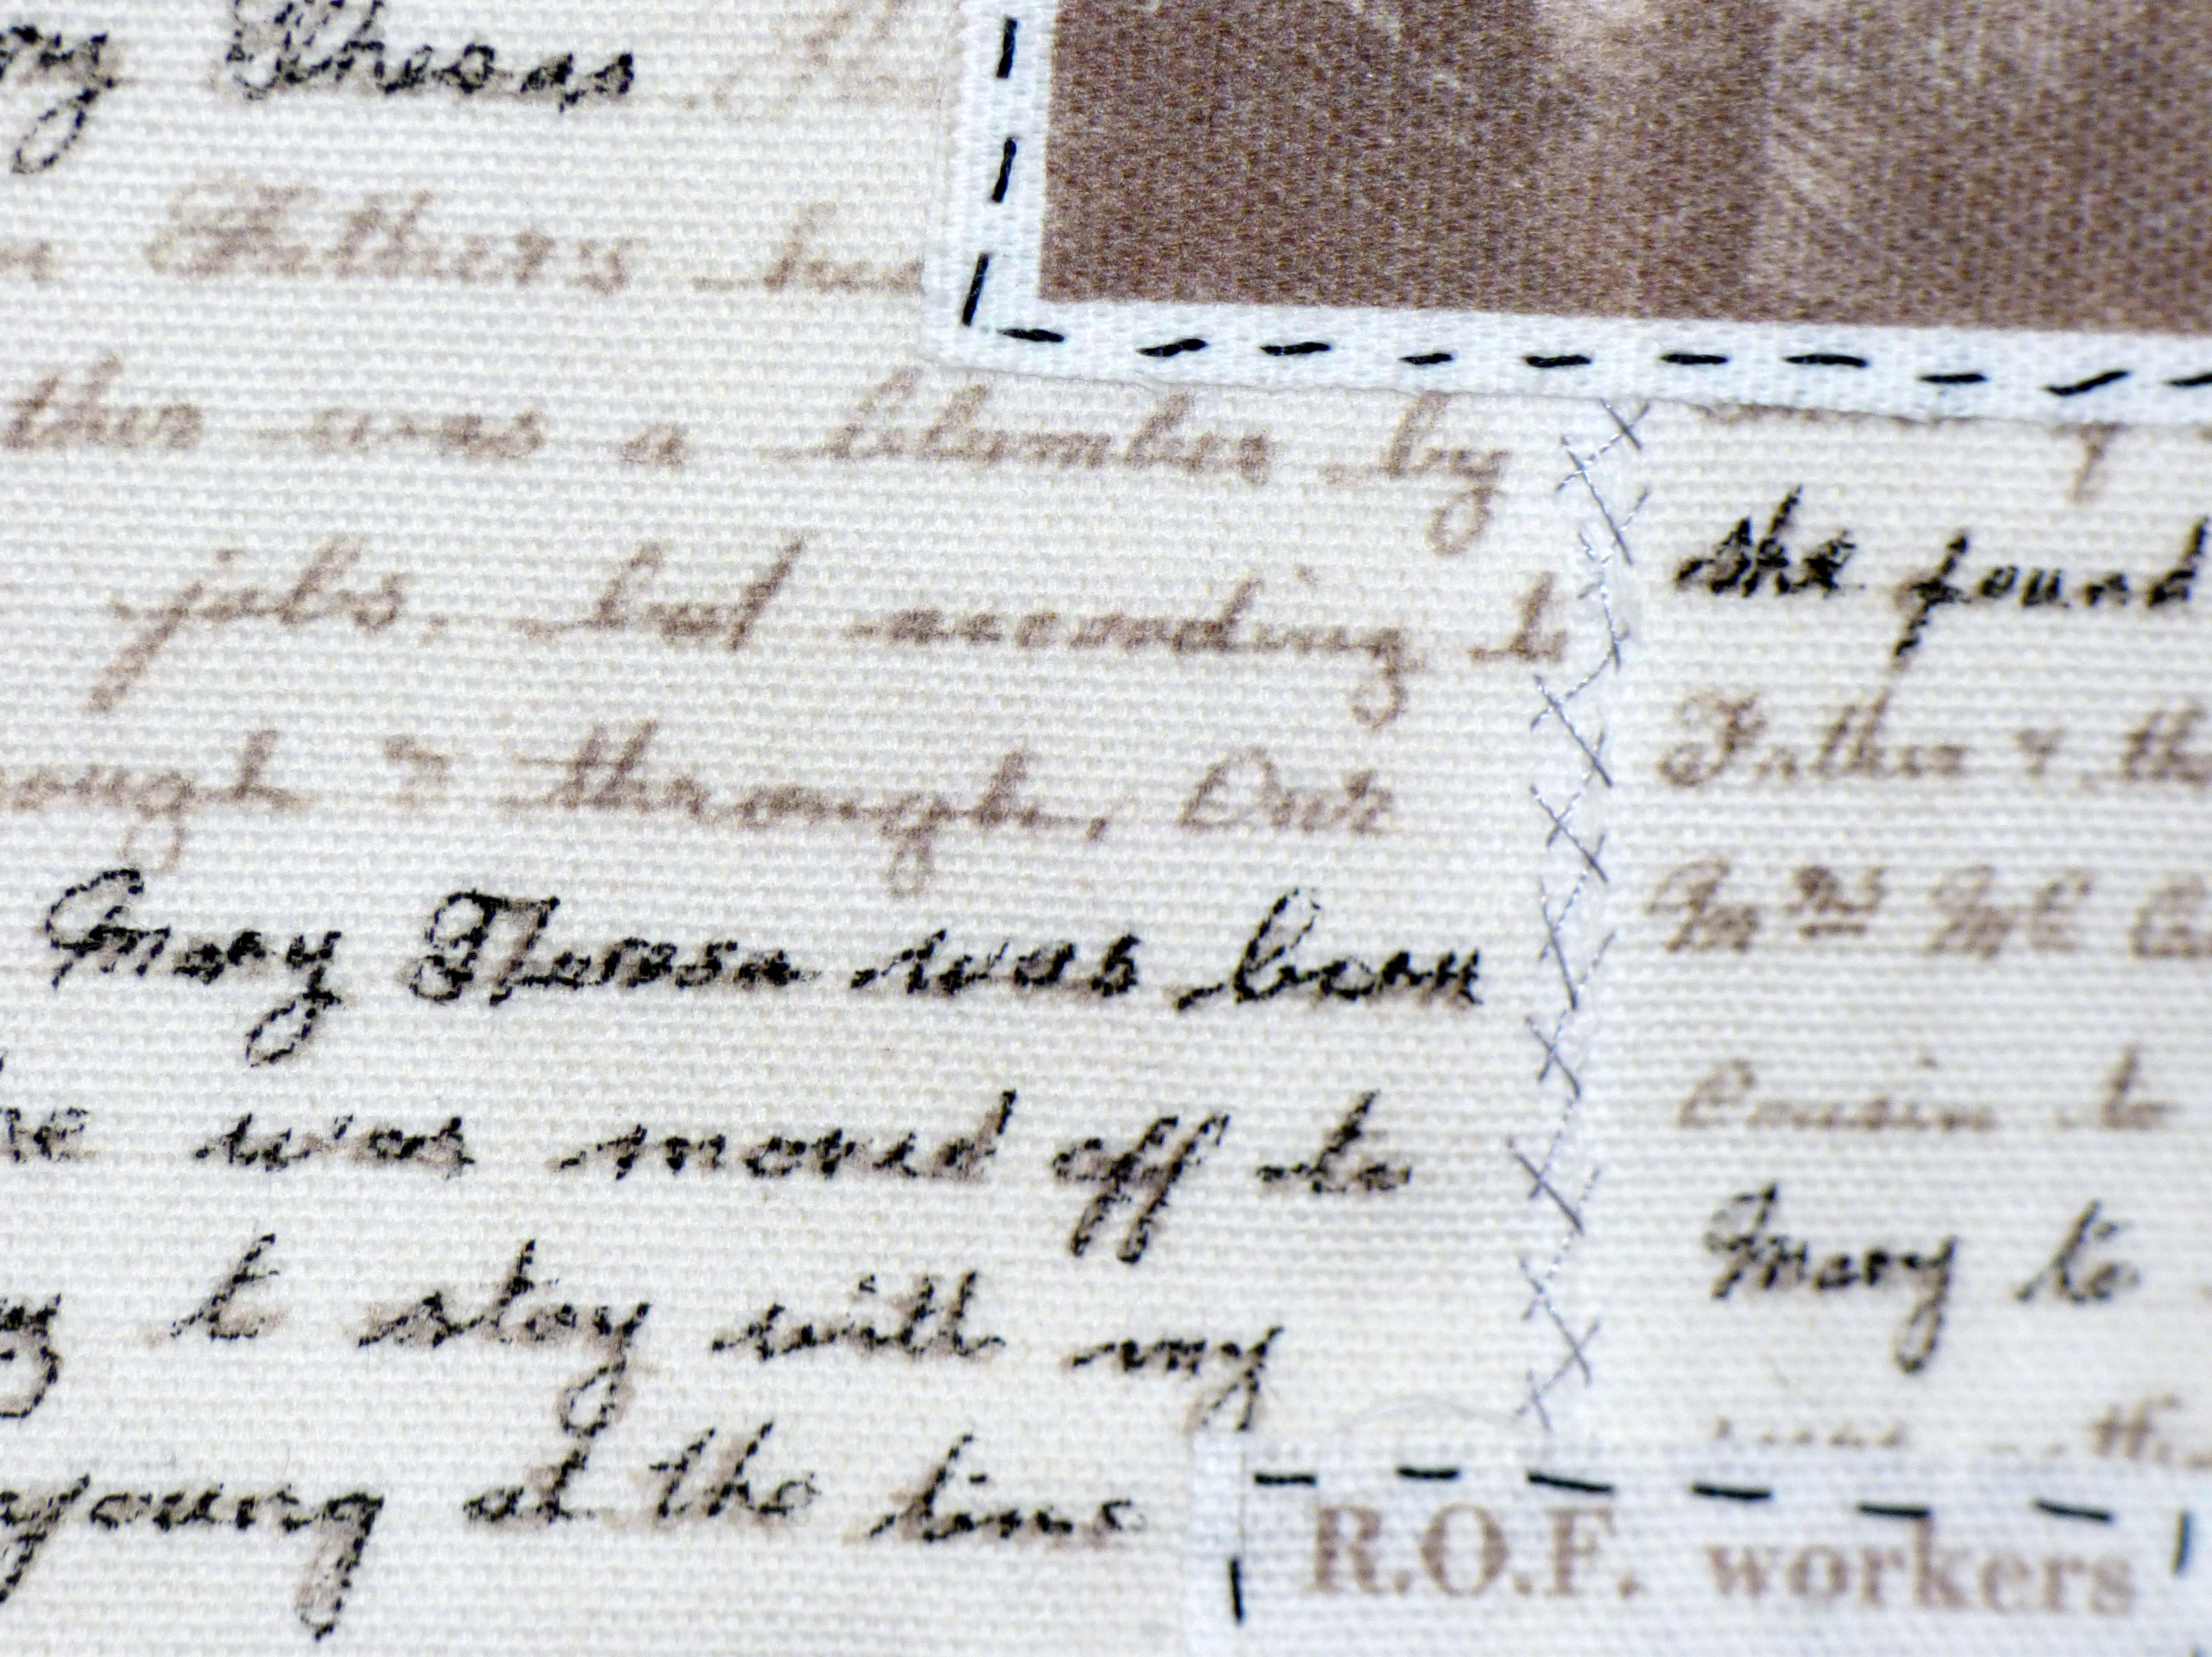 ry Theresa
Fathers
ther was a Plumber by
jobs, but according to
ough & through, Our
Mary Theresa was born
he was moved off to
to stay with my
young at the time
she found
Father & th
Mrs Mc
Cousin to
Mary to
R.O.F. workers